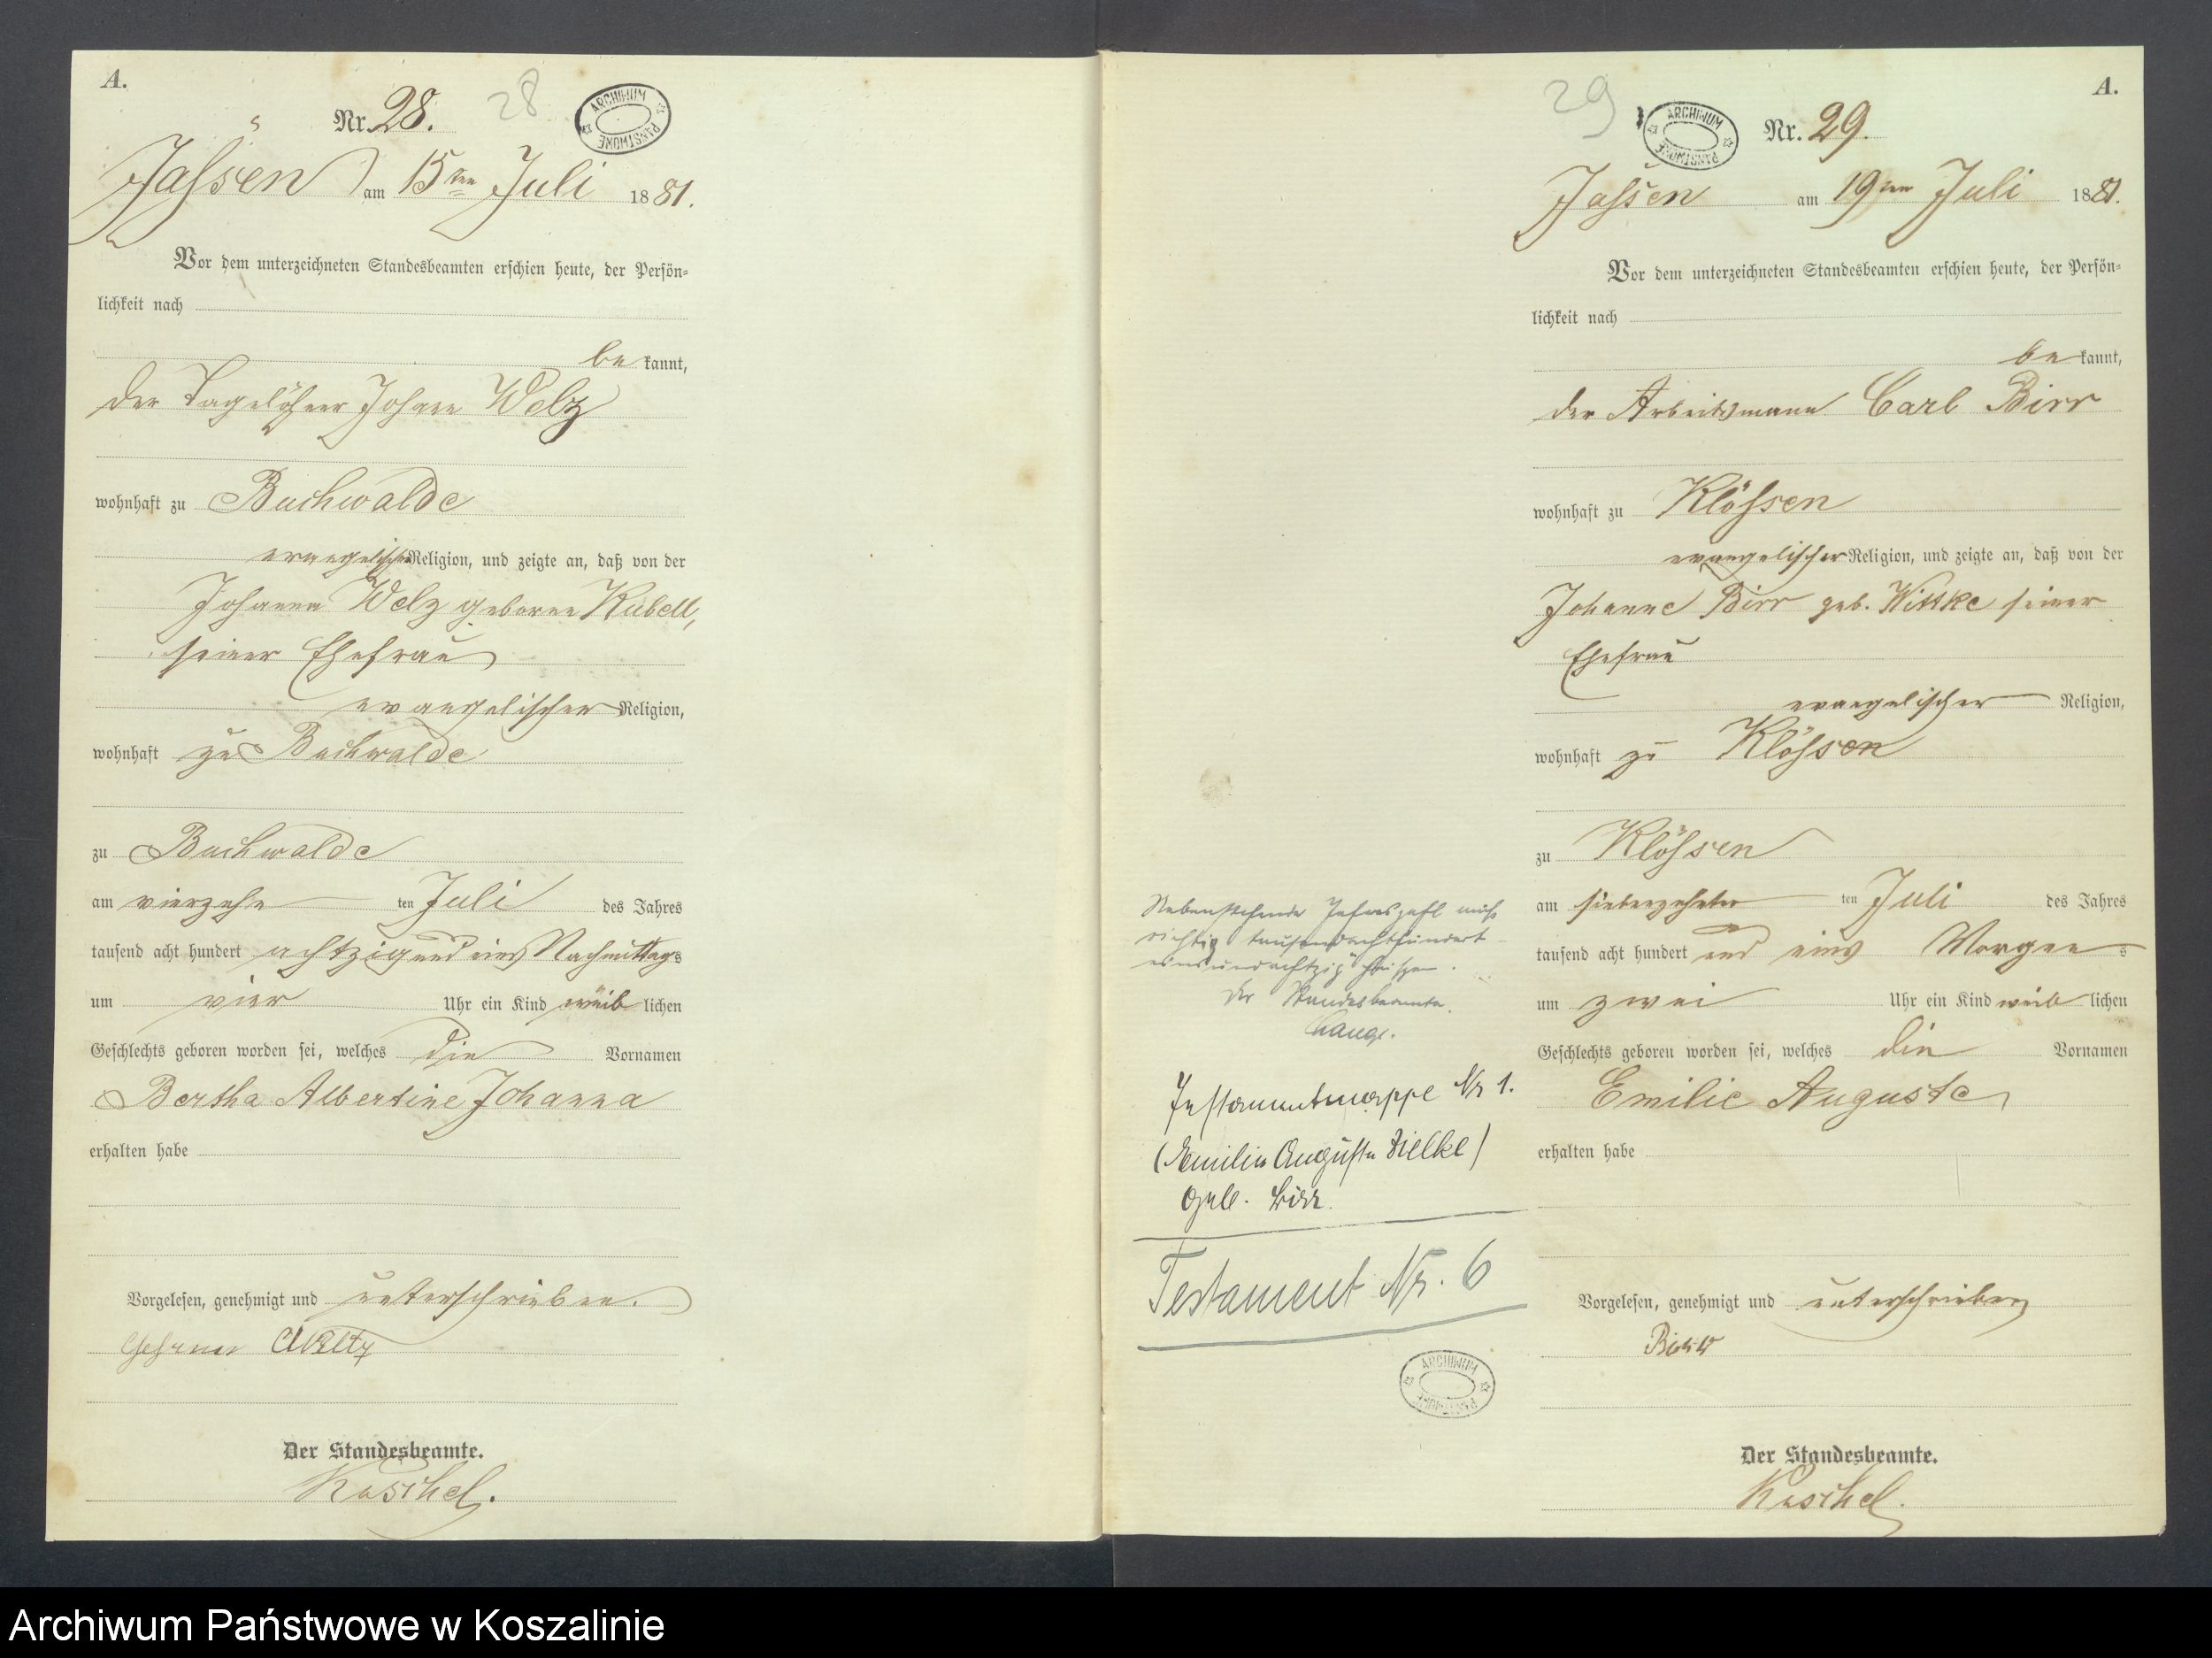 A.
Nr. 28.
28
ARCHIWUM PAŃSTWOWE
Jassen am 15ten Juli 1881.
Vor dem unterzeichneten Standesbeamten erschien heute, der Persön-
lichkeit nach
be kannt,
der Tagelöhner Johann Welz
wohnhaft zu Buchwalde
evangelischer Religion, und zeigte an, daß von der
Johanna Welz geborne Kubell,
seiner Ehefrau
evangelischer Religion,
wohnhaft zu Buchwalde
zu Buchwalde
am vierzehn ten Juli des Jahres
tausend acht hundert achtzig und eins Nachmittags
um vier Uhr ein Kind weib lichen
Geschlechts geboren worden sei, welches die Vornamen
Bertha Albertine Johanna
erhalten habe
Vorgelesen, genehmigt und unterschrieben.
Weltz
Der Standesbeamte.
Kaschel.
A.
29
ARCHIWUM PAŃSTWOWE
Nr. 29.
Jassen am 19ten Juli 1881.
Vor dem unterzeichneten Standesbeamten erschien heute, der Persön-
lichkeit nach
be kannt,
der Arbeitsmann Carl Birr
wohnhaft zu Klössen
evangelischer Religion, und zeigte an, daß von der
Johanne Birr geb. Wittke seiner
Ehefrau
evangelischer Religion,
wohnhaft zu Klössen
zu Klössen
am siebenzehnten ten Juli des Jahres
tausend acht hundert und eins Morgens
um zwei Uhr ein Kind weib lichen
Geschlechts geboren worden sei, welches die Vornamen
Emilie Auguste
erhalten habe
Vorgelesen, genehmigt und unterschrieben
Birr
Der Standesbeamte.
Kaschel.
Nebenstehende Jahreszahl muß
richtig tausendachthundert
einsundachtzig heißen.
Der Standesbeamte.
Testamentmappe Nr 1.
(Emilie Auguste Zielke)
geb. Birr.
Testament Nr. 6
ARCHIWUM PAŃSTWOWE
Archiwum Państwowe w Koszalinie